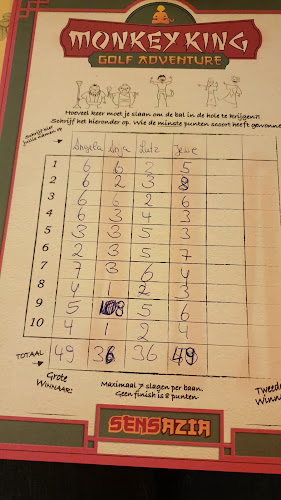 MONKEY KING
GOLF ADVENTURE
Hoeveel keer moet je slaan om de bal in de hole te krijgen?!
Schrijf het hieronder op. Wie de minste punten scoort heeft gewonne
Schrijf hier
jullie namen op
Angela Anja Lutz
1 6 6 2 5
2 6 2 3 8
3 6 6 2 6
4 6 3 4 3
5 3 3 5 3
6 2 3 5 7
7 7 3 6 4
8 4 1 2 3
9 5 8 5 6
10 4 1 2 4
TOTAAL 49 36 36 49
Grote
WINNAAR:
Maximaal 7 slagen per baan.
Geen finish is 8 punten
Tweed
Winn
SENSAZIA